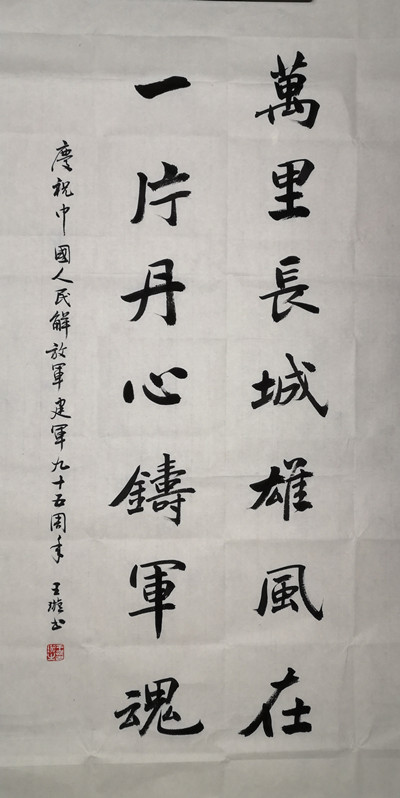 萬里長城雄風在
一片丹心鑄軍魂
慶祝中國人民解放軍建軍九十五周年 王璇书